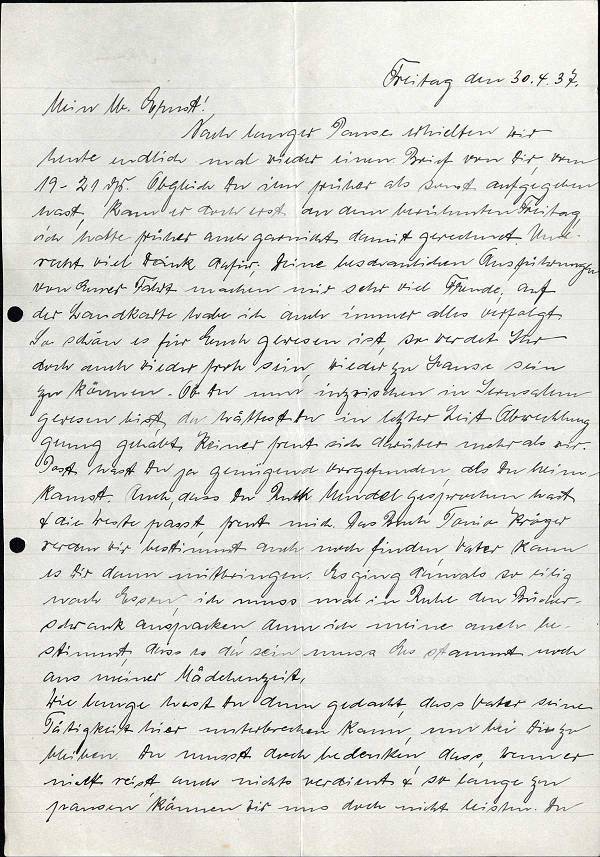 Freitag den 30.4.37.
Mein lb. Ernst!
Nach langer Pause erhielten wir
heute endlich mal wieder einen Brief von Dir, vom
19-21 ds. Obgleich Du ihn früher als sonst aufgegeben
hast, kam er doch erst an dem berühmten Freitag
ich hatte früher auch garnicht damit gerechnet Und
recht viel Dank dafür, Deine Ausführungen
von Eurer Fahrt machen mir sehr viel Freude, auf
der Landkarte habe ich auch immer alles verfolgt
So schön es für Euch gewesen ist, so werdet Ihr
doch auch wieder froh sein, wieder zu Hause sein
zu können. Ob Du nun inzwischen in Jerusalem
gewesen bist, da hättest Du in letzter Zeit Abwechslung
genug gehabt, keiner freut sich darüber mehr als wir.
Post hast Du ja genügend vorgefunden, als Du heim-
kamst. Auch, dass Du Ruth Mendel gesprochen hast
& die Weste passt, freut mich. Das Buch Tonio Kröger
werden wir bestimmt auch noch finden, Vater kann
es Dir dann mitbringen. Es ging damals so eilig
nach Essen, ich muss mal in Ruhe den Bücher-
schrank auspacken denn ich meine auch be-
stimmt, dass es da sein muss Es stammt noch
aus meiner Mädchenzeit.
Wie lange hast Du denn gedacht, dass Vater seine
Tätigkeit hier unterbrechen kann, um bei Dir zu
bleiben. Du musst doch bedenken, dass, wenn er
nicht reist auch nichts verdient & so lange zu
pausen können wir uns doch nicht leisten. Du